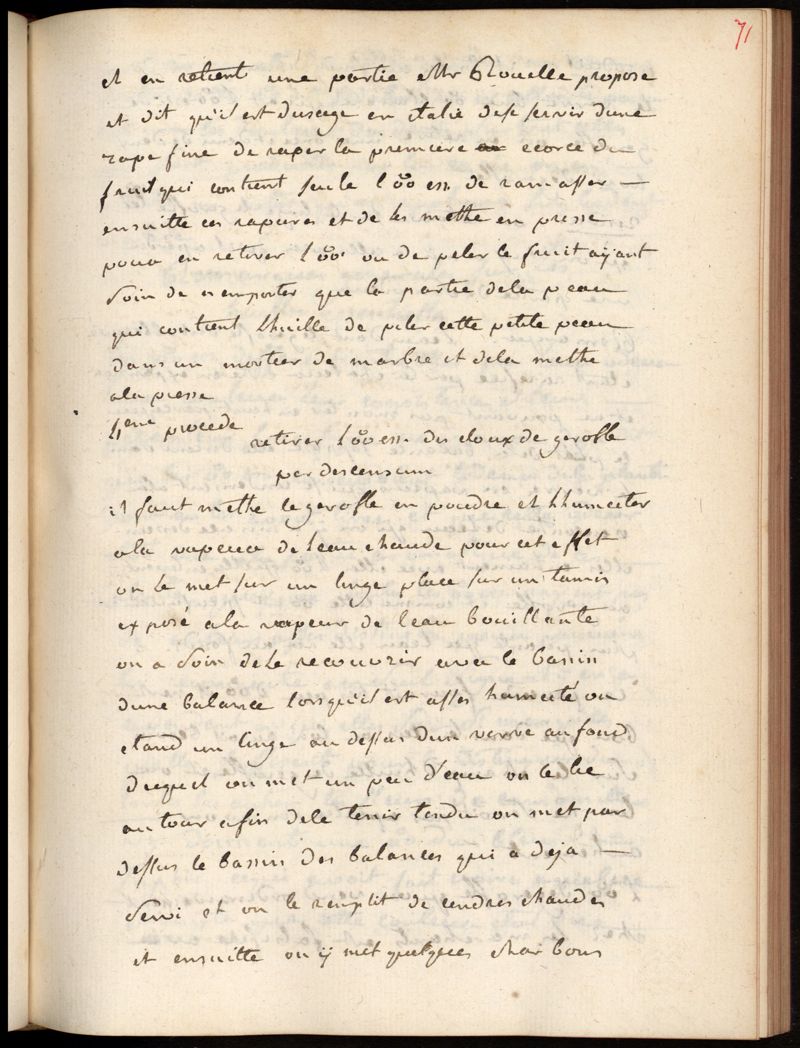 71
et en retient une partie Mr Rouelle propose
et dit qu'il est dusage en italie dese servir dune
rape fine de raper la premiere ecorce du
fruit qui contient seule l'oo ess. de ramasser —
ensuitte ces rapures et de les mettre en presse
pour en retirer l'oo. ou de peler le fruit aÿant
soin de n'emporter que la partie dela peau
qui contient lhuille de piler cette petite peau
dans un mortier de marbre et dela mettre
ala presse
4eme procede
retirer l'oo ess. des cloux de gerofle
per descensum
il faut mettre le gerofle en poudre et lhumecter
ala vapeur de leau chaude pour cet effet
on le met sur un linge place sur un tamis
exposé ala vapeur de leau bouillante
on a soin dele recouvrir avec le bassin
dune balance lorsqu'il est asses humecté on
etand un linge au dessus dun verre au fond
duquel on met un peu d'eau on le lie
autour afin dele tenir tendu on met par
dessus le bassin des balances qui a deja —
servi et on le remplit de cendres chaudes
et ensuitte on ÿ met quelques charbons